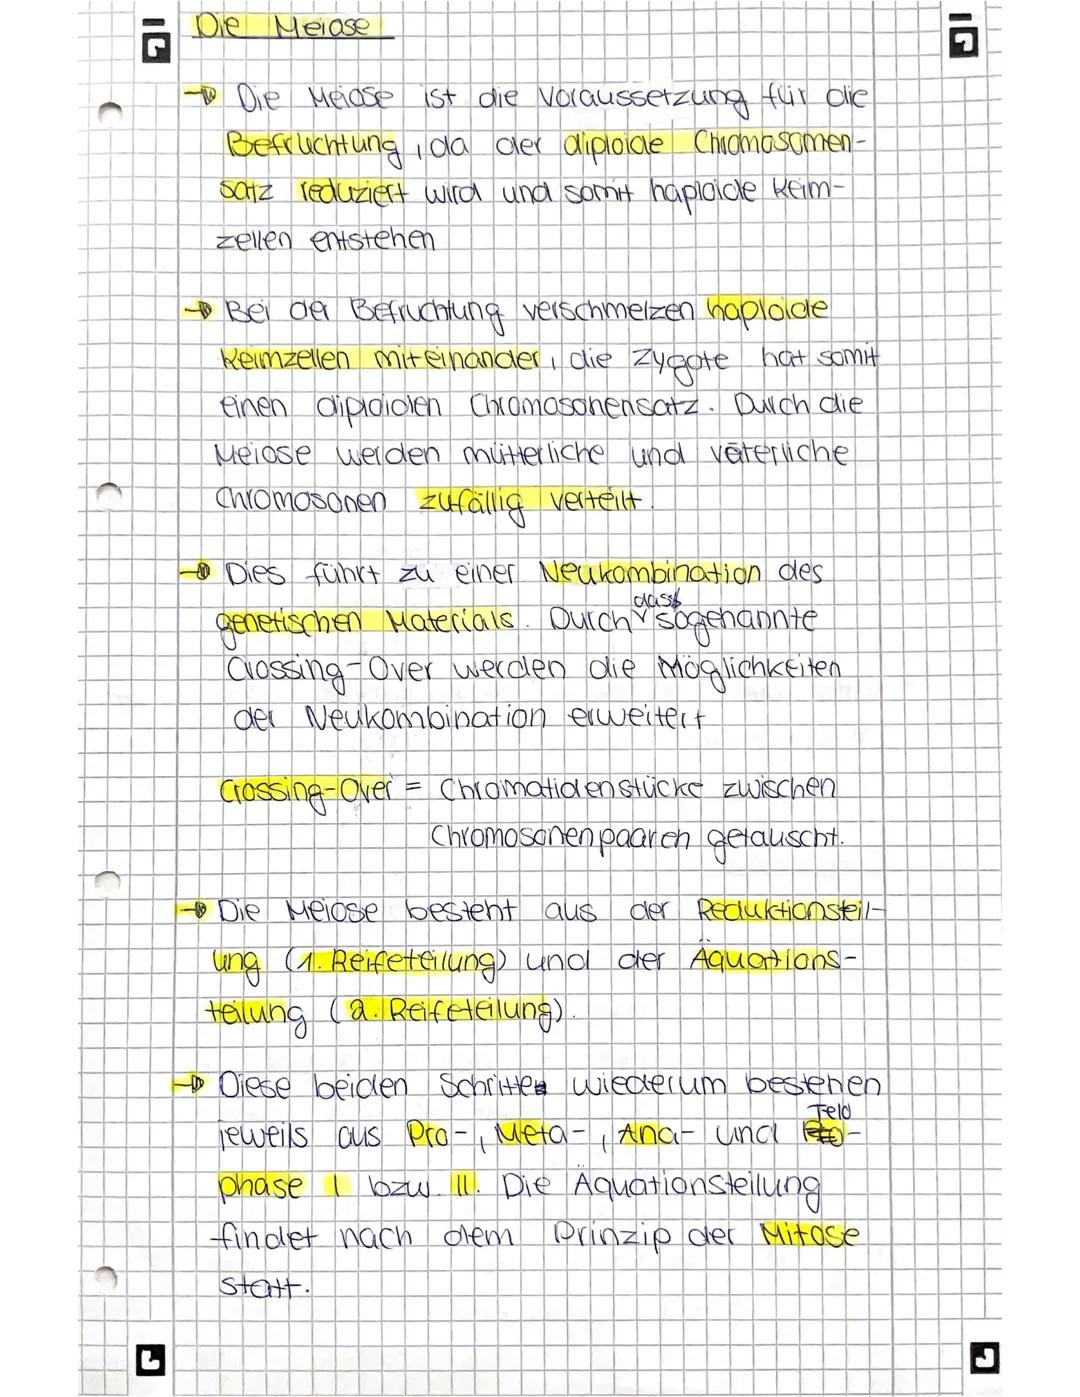 Die Meiose
Die Meiose ist die Voraussetzung für die
Befruchtung, da der diploide Chromosomen-
satz reduziert wird und somit haploide Keim-
zellen entstehen
Bei der Befruchtung verschmelzen haploide
Keimzellen miteinander, die Zygote hat somit
einen diploiden Chromosonensatz. Durch die
Meiose werden mütterliche und väterliche
Chromosonen zufällig verteilt.
Dies führt zu einer Neukombination des
genetischen Materials. Durch dass sogenannte
Crossing-Over werden die Möglichkeiten
der Neukombination erweitert
Crossing-Over = Chromatidenstücke zwischen
Chromosonenpaaren getauscht.
Die Meiose besteht aus der Reduktionsteil-
ung (1. Reifeteilung) und der Äquations-
teilung (2. Reifeteilung).
Diese beiden Schritte wiederum bestehen
jeweils aus Pro-, Meta-, Ana- und Telo-
phase I bzw. II. Die Äquationsteilung
findet nach dem Prinzip der Mitose
statt.